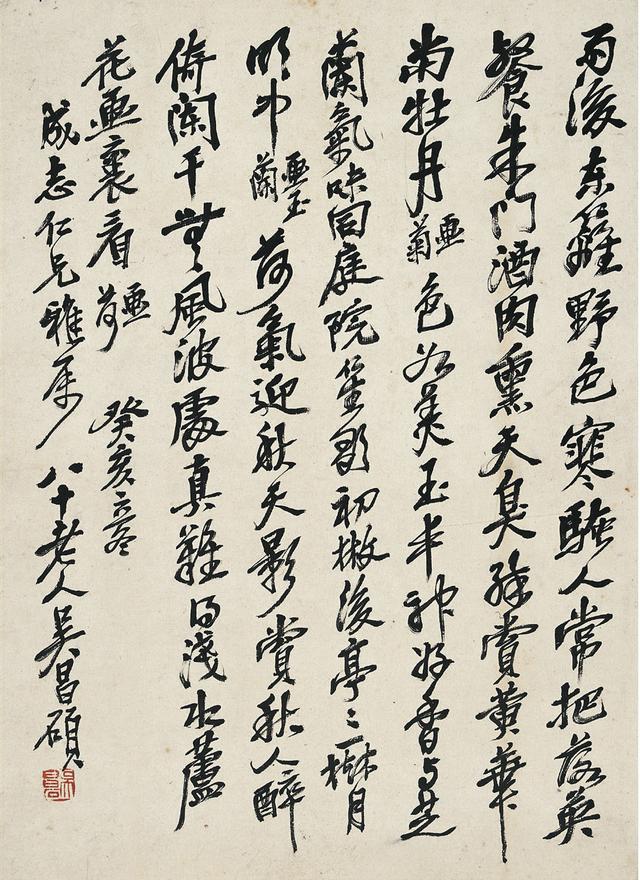 雨後东籬野色寒騷人常把落英
餐朱門酒肉熏天臭除賞黃華
尚牡丹畫菊色如美玉丰神好香与芝
蘭氣味同庭院笙歌初撤後亭亭一樹月
明中畫玉蘭荷氣迎秋天影賞秋人醉
倚闌干無風波處真難得淺水蘆
花畫裏看畫荷癸亥立冬
成志仁兄雅屬八十老人吳昌碩